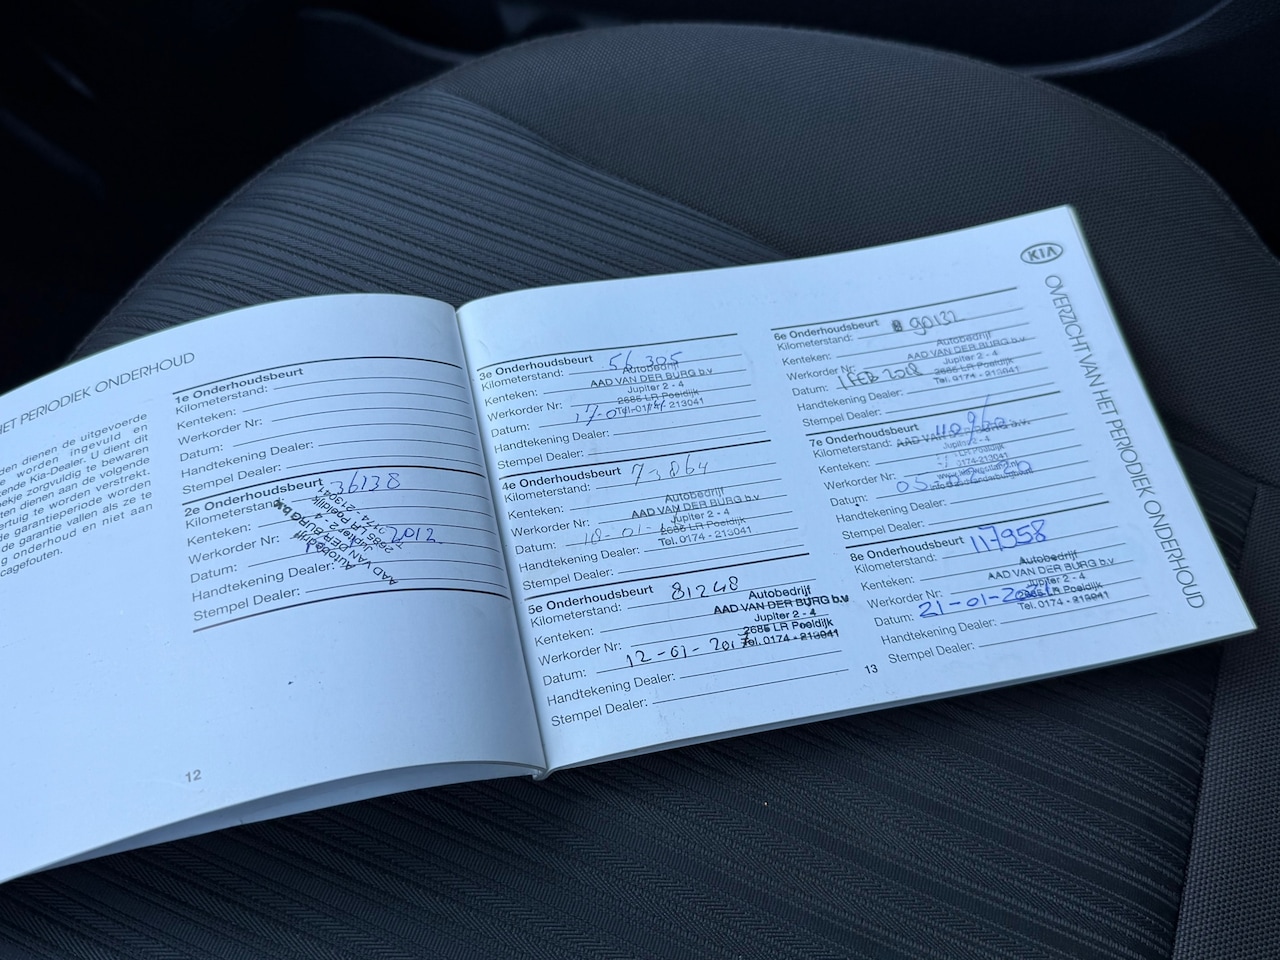 HET PERIODIEK ONDERHOUD
den dienen de uitgevoerde
worden ingevuld en
ende Kia-Dealer. U dient dit
ekje zorgvuldig te bewaren
ten dienen aan de volgende
ertuig te worden verstrekt.
de garantieperiode worden
garantie vallen als ze te
g onderhoud en niet aan
cagefouten.
1e Onderhoudsbeurt
Kilometerstand:
Kenteken:
Werkorder Nr:
Datum:
Handtekening Dealer:
Stempel Dealer:
2e Onderhoudsbeurt
Kilometerstand: 36138
Kenteken:
Werkorder Nr:
Datum: 2012
Handtekening Dealer:
Stempel Dealer:
Autobedrijf
AAD VAN DER BURG b.v
Jupiter 2 - 4
2685 LR Poeldijk
Tel. 0174 - 213041
12
3e Onderhoudsbeurt
Kilometerstand: 56305
Kenteken:
Werkorder Nr:
Datum:
Handtekening Dealer:
Stempel Dealer:
Autobedrijf
AAD VAN DER BURG b.v
Jupiter 2 - 4
2685 LR Poeldijk
Tel. 0174 - 213041
4e Onderhoudsbeurt
Kilometerstand: 73864
Kenteken:
Werkorder Nr:
Datum:
Handtekening Dealer:
Stempel Dealer:
Autobedrijf
AAD VAN DER BURG b.v
Jupiter 2 - 4
2685 LR Poeldijk
Tel. 0174 - 213041
5e Onderhoudsbeurt
Kilometerstand: 81248
Kenteken:
Werkorder Nr:
Datum: 12-01-2017
Handtekening Dealer:
Stempel Dealer:
Autobedrijf
AAD VAN DER BURG b.v
Jupiter 2 - 4
2685 LR Poeldijk
Tel. 0174 - 213041
6e Onderhoudsbeurt
Kilometerstand: 90132
Kenteken:
Werkorder Nr:
Datum: 1 FEB 2018
Handtekening Dealer:
Stempel Dealer:
Autobedrijf
AAD VAN DER BURG b.v
Jupiter 2 - 4
2685 LR Poeldijk
Tel. 0174 - 213041
7e Onderhoudsbeurt
Kilometerstand: 110960
Kenteken:
Werkorder Nr:
Datum:
Handtekening Dealer:
Stempel Dealer:
AAD VAN DER BURG b.v.
Jupiter 2 - 4
0174-213041
8e Onderhoudsbeurt
Kilometerstand: 117958
Kenteken:
Werkorder Nr:
Datum: 21-01-
Handtekening Dealer:
Stempel Dealer:
Autobedrijf
AAD VAN DER BURG b.v
Jupiter 2 - 4
2685 LR Poeldijk
Tel. 0174 - 213041
13
KIA
OVERZICHT VAN HET PERIODIEK ONDERHOUD